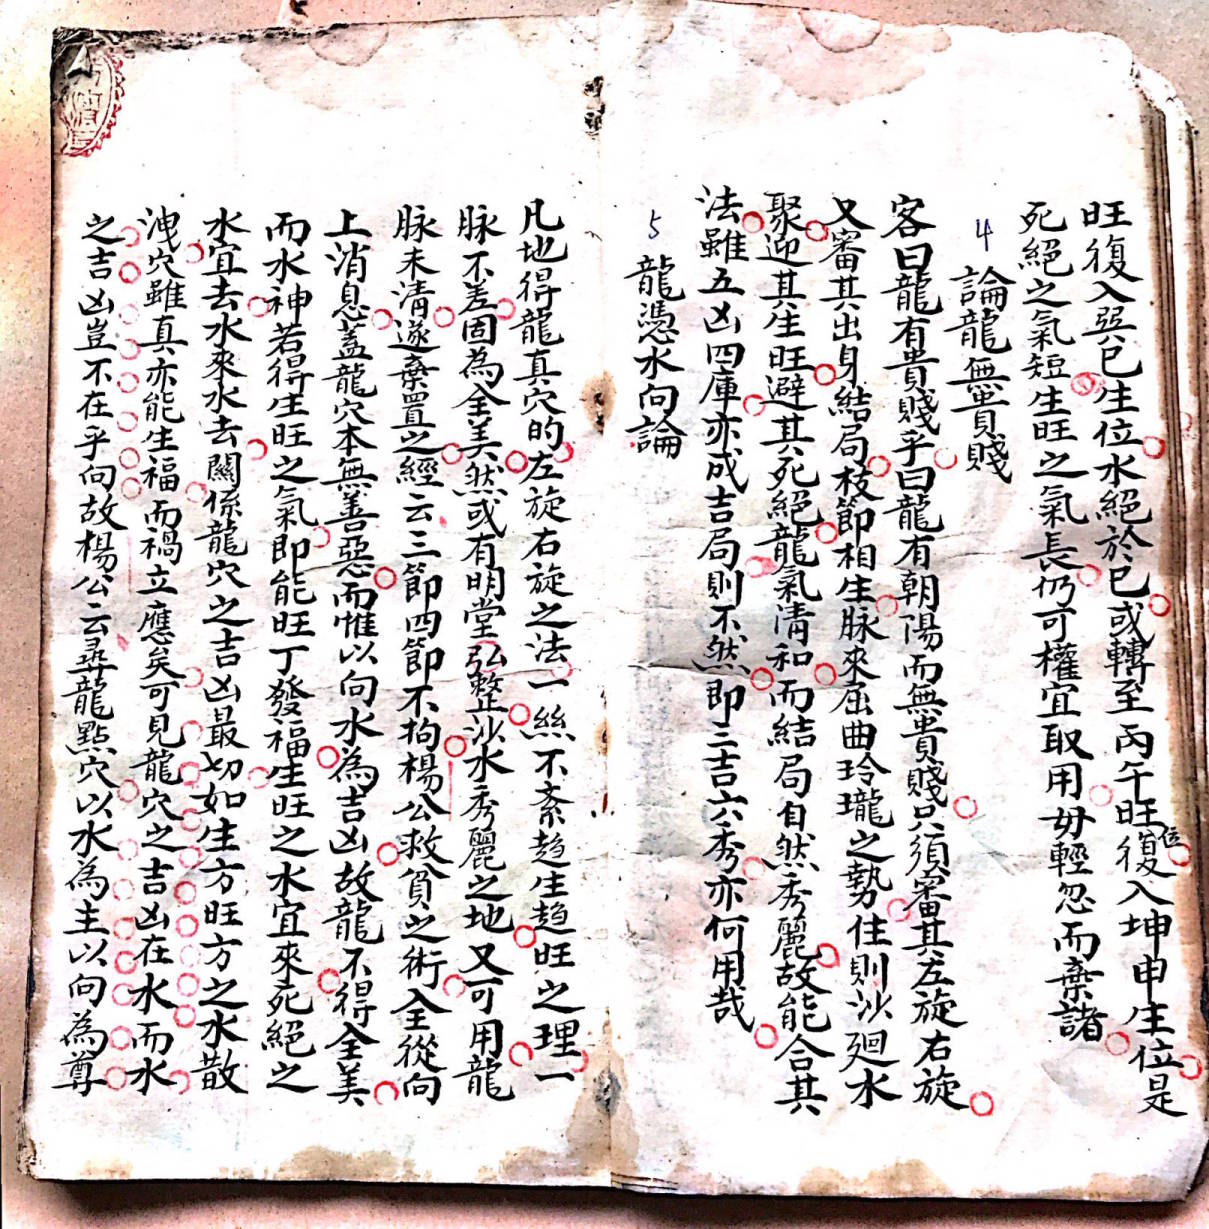 旺復入巽巳生位水絕於巳或轉至丙午旺位復入坤申生位是
死絕之氣短生旺之氣長仍可權宜取用毋輕忽而棄諸
4 論龍無貴賤
客曰龍有貴賤乎曰龍有朝陽而無貴賤只須審其左旋右旋
又審其出身結局枝節相生脉來屈曲玲瓏之勢住則沙廻水
聚迎其生旺避其死絕龍氣清和而結局自然秀麗故能合其
法雖五凶四庫亦成吉局則不然即三吉六秀亦何用哉
5 龍憑水向論
凡地得龍真穴的左旋右旋之法一絲不紊趋生趋旺之理一
脉不差固為全美然或有明堂弘整沙水秀麗之地又可用龍
脉未清遂棄置之經云三節四節不拘楊公救貧之術全從向
上消息蓋龍穴本無善惡而惟以向水為吉凶故龍不得全美
而水神若得生旺之氣即能旺丁發福生旺之水宜來死絕之
水宜去水來水去關係龍穴之吉凶最切如生方旺方之水散
洩穴雖真亦能生福而禍立應矣可見龍穴之吉凶在水而水
之吉凶豈不在乎向故楊公云尋龍點穴以水為主以向為尊